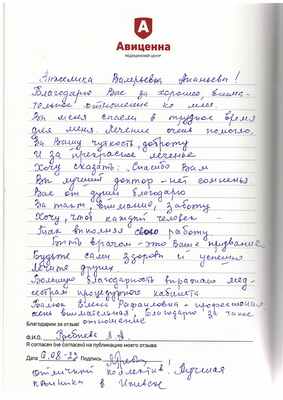 Авиценна
МЕДИЦИНСКИЙ ЦЕНТР
Анжелика Валерьевна Ананьева!
Благодарю Вас за хорошее, внима-
тельное отношение ко мне.
Вы меня спасли в трудное время
для меня. Лечение очень помогло.
За Вашу чуткость, доброту
И за прекрасное лечение
Хочу сказать: Спасибо Вам
Вы лучший доктор - нет сомненья
Вас от души благодарю
За такт, внимание, заботу
Хочу, чтоб каждый человек
Так выполнял свою работу.
Быть врачом - это Ваше призвание
Будьте сами здоровы и успешно
лечите других
Большую благодарность выражаю мед-
сестрам процедурного кабинета
Елена Рафаиловна - профессиона
внимательная, благодарю за такое
Благодарим за отзыв! отношение
Я согласен (не согласен) на публикацию моего отзыва
Дата 6.08-22 Подпись
отличный коллектив! Лучшая
клиника в Ижевске